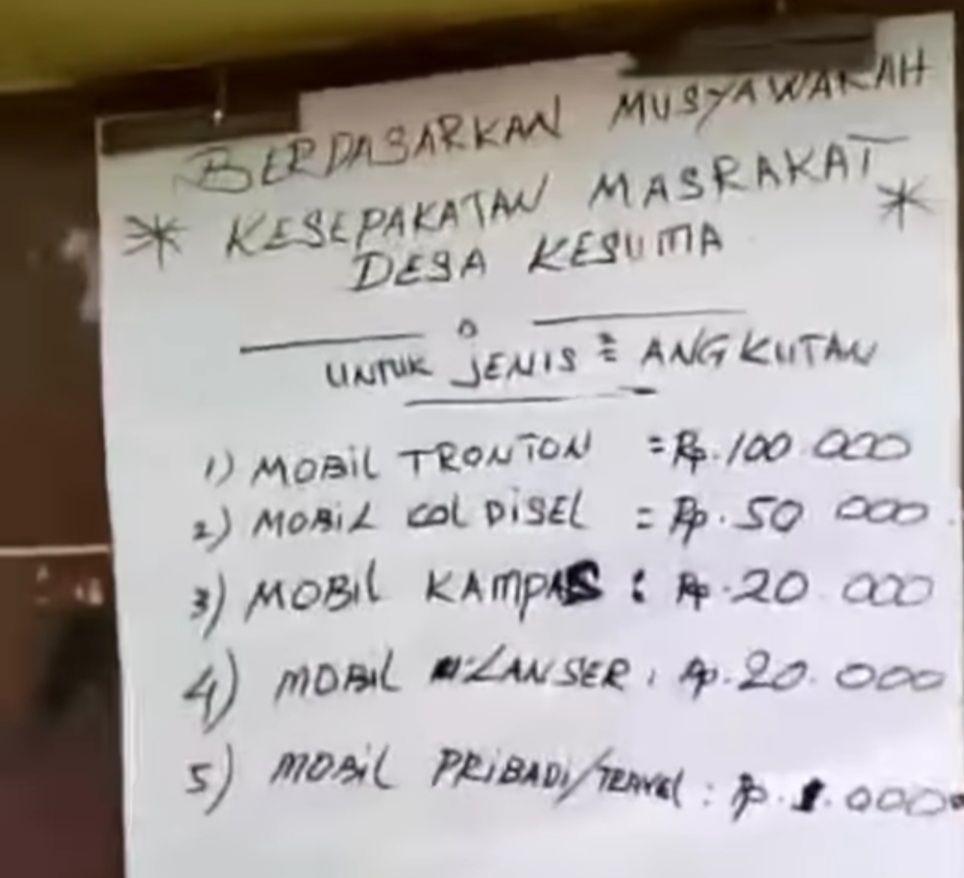 BERDASARKAN MUSYAWARAH
* KESEPAKATAN MASRAKAT *
DESA KESUMA
UNTUK JENIS² ANGKUTAN
1) MOBIL TRONTON = Rp. 100.000
2) MOBIL COL DISEL = Rp. 50 000.
3) MOBIL KAMPAS : Rp. 20.000
4) MOBIL LANSER : Rp. 20.000
5) MOBIL PRIBADI/TRAVEL : Rp.